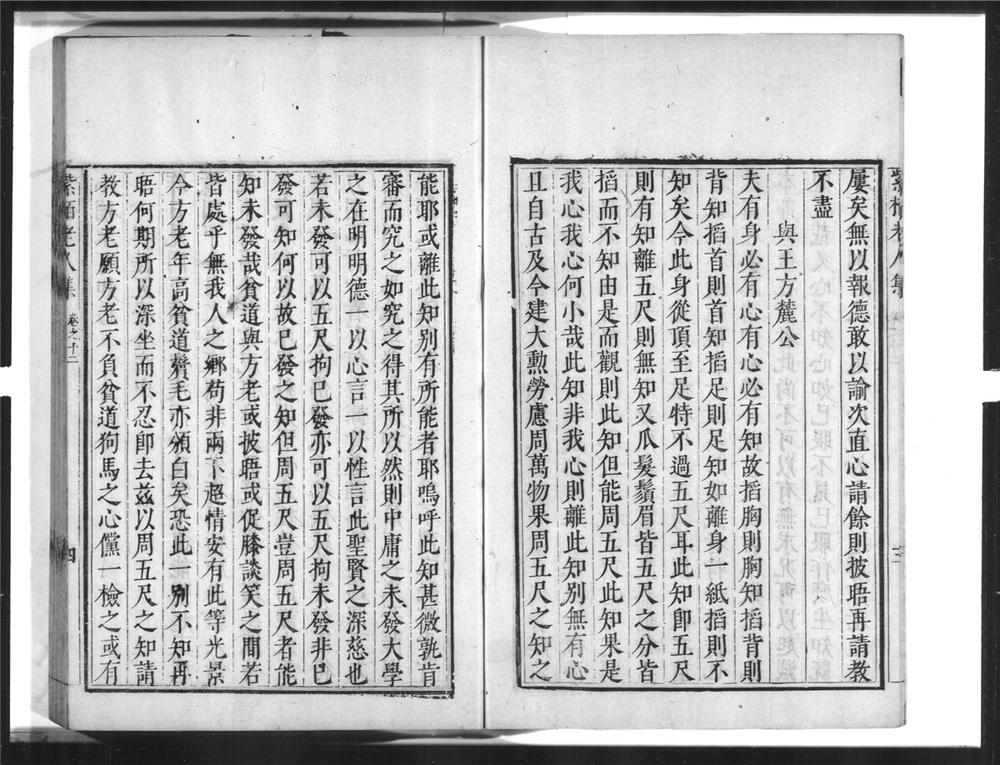 屢矣無以報德敢以諭次直心請餘則披晤再請教
不盡
與王方麓公
夫有身必有心有心必有知故搯胸則胸知搯背則
背知搯首則首知搯足則足知如離身一紙搯則不
知矣今此身從頂至足特不過五尺耳此知卽五尺
則有知離五尺則無知又爪髮鬚眉皆五尺之分皆
搯而不知由是而觀則此知但能周五尺此知果是
我心我心何小哉此知非我心則離此知別無有心
且自古及今建大勲勞慮周萬物果周五尺之知之
能耶或離此知別有所能者耶嗚呼此知甚微孰肯
審而究之如究之得其所以然則中庸之未發大學
之在明明德一以心言一以性言此聖賢之深慈也
若未發可以五尺拘已發亦可以五尺拘未發非已
發可知何以故已發之知但周五尺豈周五尺者能
知未發哉貧道與方老或披晤或促膝談笑之間若
皆處乎無我人之鄉苟非兩下超情安有此等光景
今方老年高貧道鬢毛亦頒白矣恐此一別不知再
晤何期所以深坐而不忍卽去茲以周五尺之知請
教方老願方老不負貧道狗馬之心儻一檢之或有
紫栢老人集
卷之十二
四